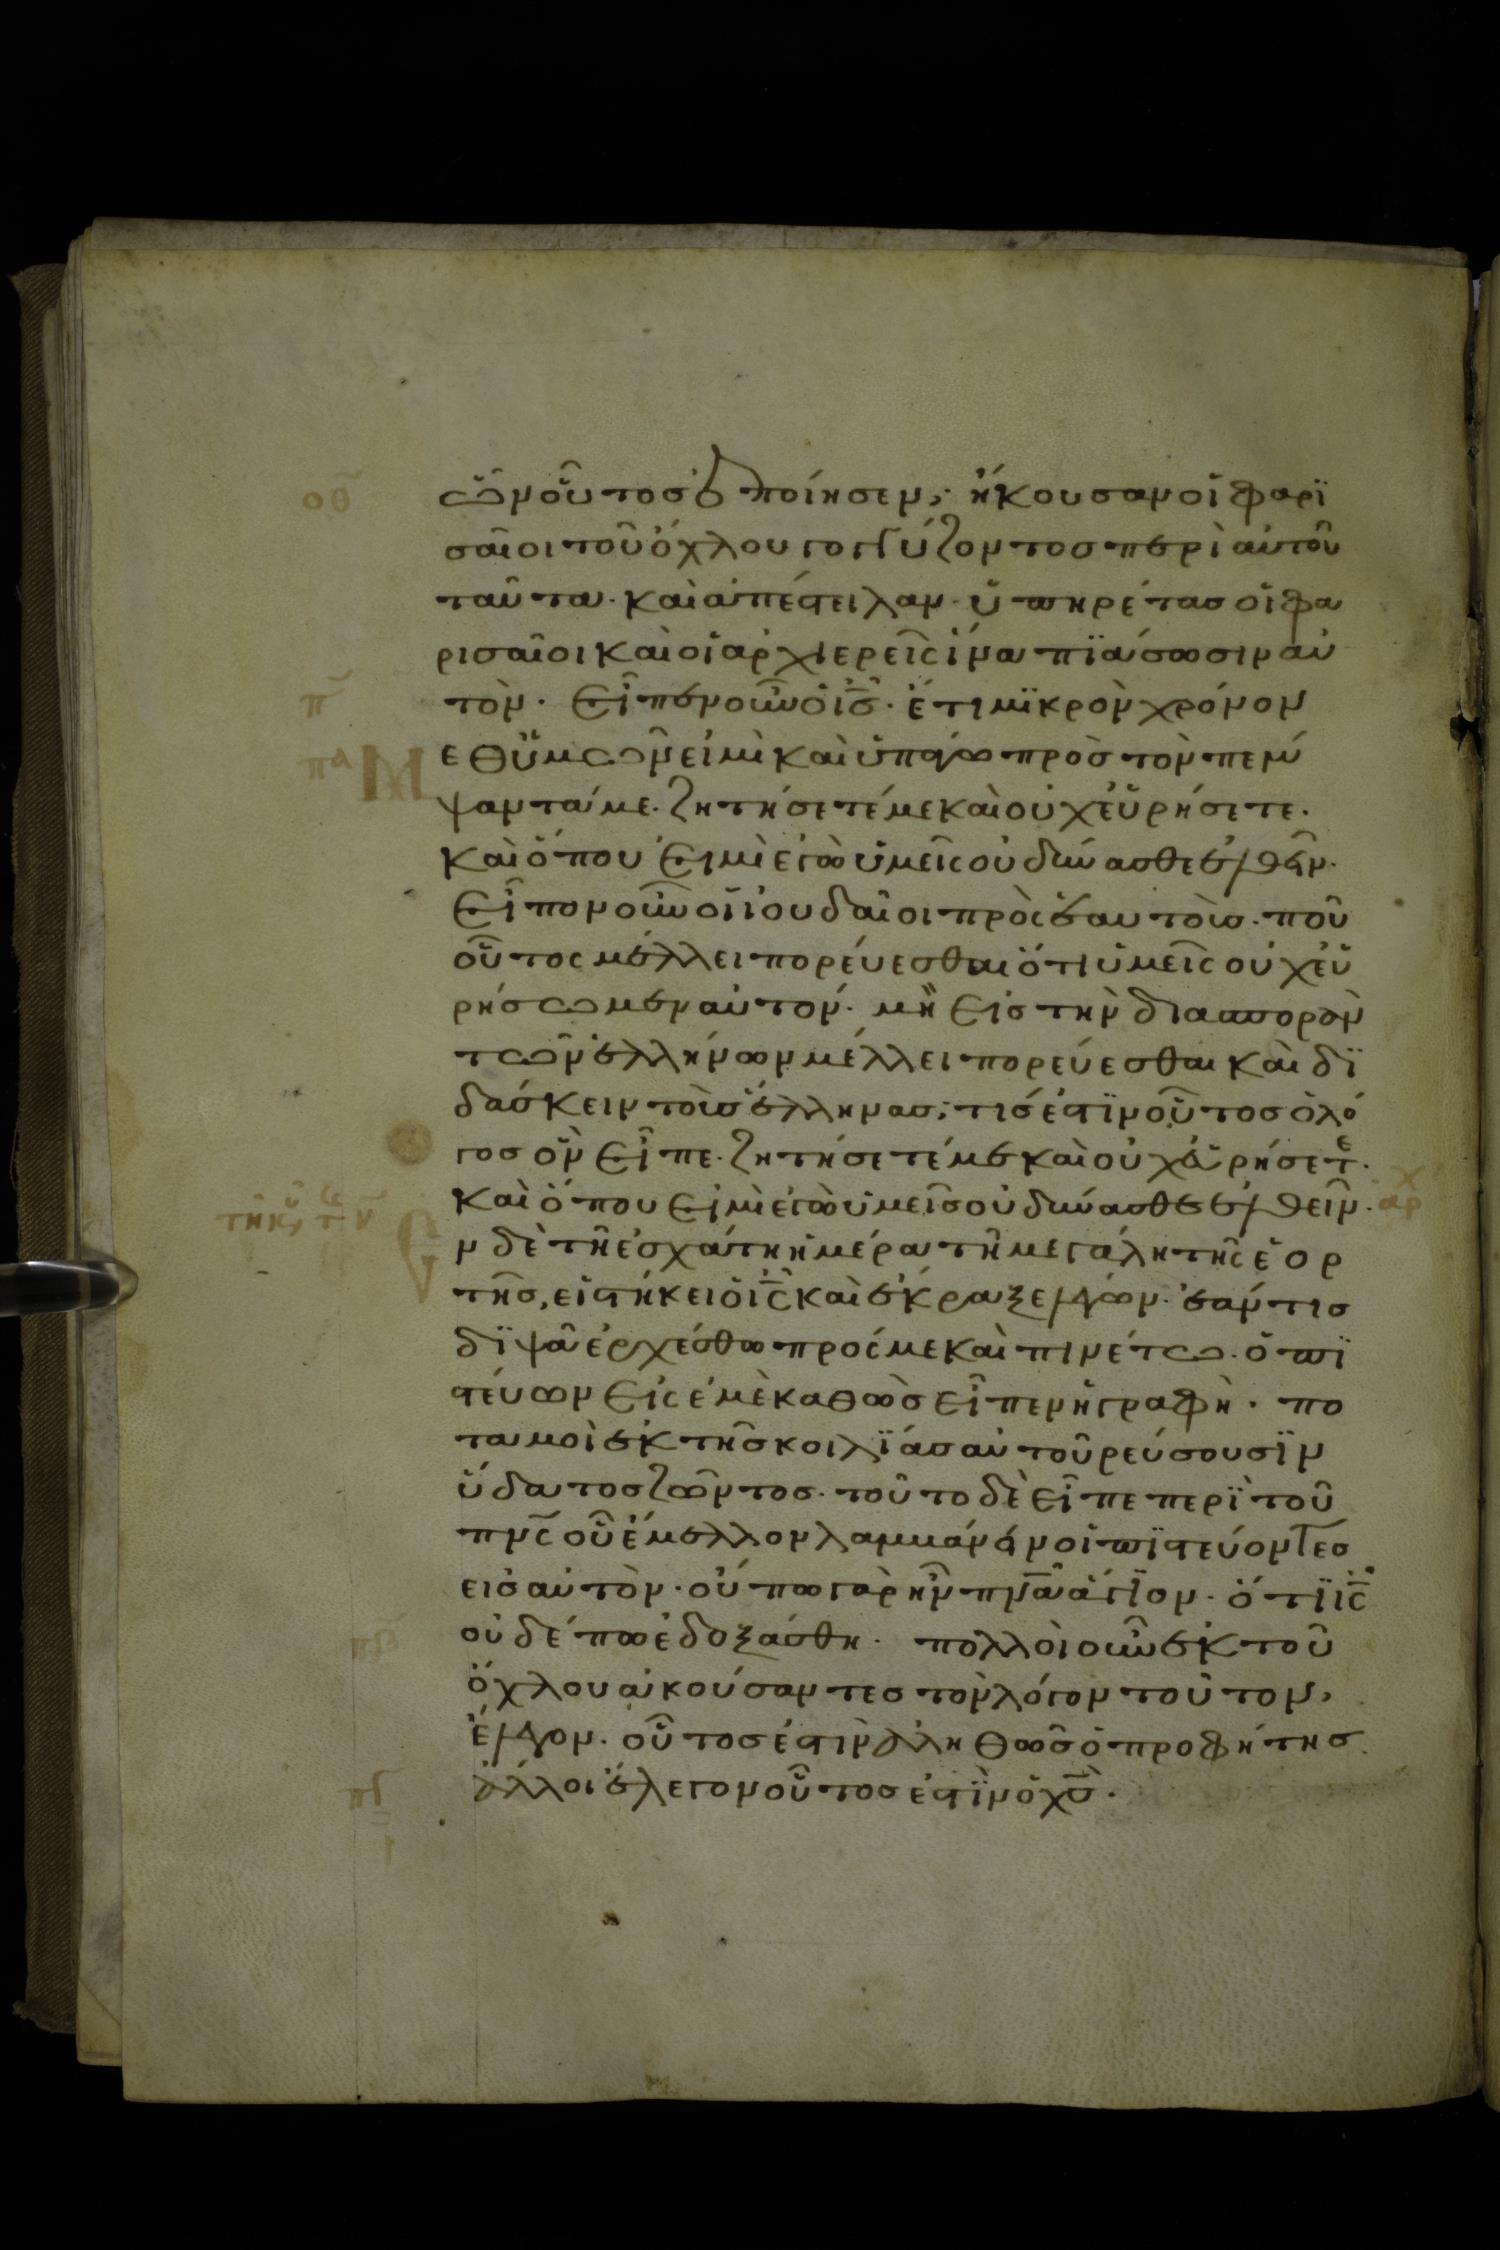 οθ ὧν οὗτος ἐποίησεν; ἤκουσαν οἱ φαρϊ
σαῖοι τοῦ ὄχλου γογγύζοντος περὶ αὐτοῦ
ταῦτα· καὶ ἀπέστειλαν ὑπηρέτας οἱ φα
ρισαῖοι καὶ οἱ ἀρχιερεῖς ἵνα πϊάσωσιν αὐ
π τόν· Εἶπεν οὖν ὁ ις· ἔτι μϊκρὸν χρόνον
πα Μ εθ ὑμῶν εἰμὶ καὶ ὑπάγω πρὸς τὸν πέμ
ψαντά με· ζητήσετέ με καὶ οὐχ εὑρήσετε·
καὶ ὅπου εἰμὶ ἐγὼ ὑμεῖς οὐ δύνασθε ἐλθεῖν·
Εἶπον οὖν οἱ ἰουδαῖοι πρὸς ἑαυτοὺς· ποῦ
οὗτος μέλλει πορεύεσθαι ὅτι ἡμεῖς οὐχ εὑ
ρήσωμεν αὐτόν· μὴ εἰς τὴν διασπορὰν
τῶν ἑλλήνων μέλλει πορεύεσθαι καὶ δϊ
δάσκειν τοὺς ἕλληνας; τίς ἐστϊν οὗτος ὁ λό
γος ὃν εἶπε· ζητήσετέ με καὶ οὐχ εὑρήσετε·
καὶ ὅπου εἰμὶ ἐγὼ ὑμεῖς οὐ δύνασθε ἐλθεῖν· αρχ
τῆ κυ τ ν Ε ν δὲ τῆ ἐσχάτη ἡμέρα τῆ μεγάλη τῆς ἑορ
τῆς, εἱστήκει ὁ ις καὶ ἔκραξε λέγων· ἐάν τις
δϊψᾶ ἐρχέσθω πρός με καὶ πινέτω· ὁ πϊ
στεύων εἰς ἐμὲ καθὼς εἶπεν ἡ γραφὴ· πο
ταμοὶ ἐκ τῆς κοιλϊάς αὐτοῦ ῥεύσουσϊν
ὕδατος ζῶντος· τοῦτο δὲ εἶπε περϊ τοῦ
πνς οὗ ἔμελλον λαμβάνειν οἱ πϊστεύοντες
εἰς αὐτὸν· οὔπω γὰρ ἦν πνα ἅγϊον· ὅτϊ ις
πβ οὐδέπω ἐδοξάσθη· πολλοὶ οὖν ἐκ τοῦ
ὄχλου ἀκούσαντες τὸν λόγον τοῦτον,
ἔλεγον· οὗτος ἐστιν ἀληθῶς ὁ προφήτης
πγ ἄλλοι ἔλεγον οὗτος ἐστϊν ὁ χς·